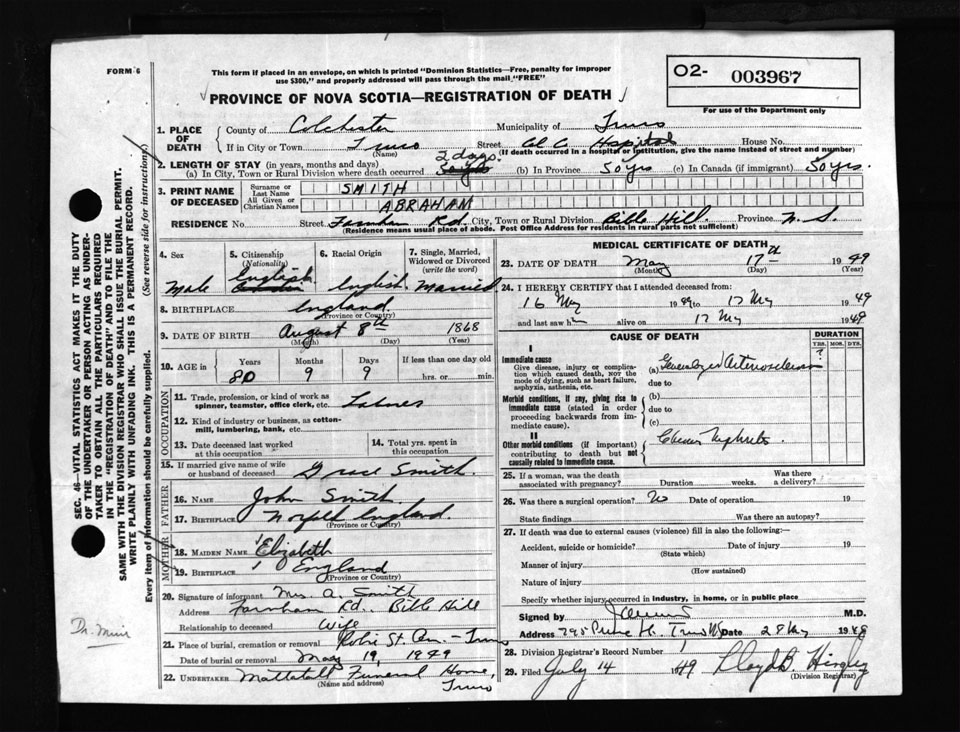 FORM 6
This form if placed in an envelope, on which is printed "Dominion Statistics—Free, penalty for improper
use $300," and properly addressed will pass through the mail "FREE"
PROVINCE OF NOVA SCOTIA—REGISTRATION OF DEATH
O2- 003967
For use of the Department only
1. PLACE OF DEATH County of Colchester Municipality of Truro
If in City or Town Truro (Name) Street Col C Hospital House No.
(If death occurred in a hospital or institution, give the name instead of street and number)
2. LENGTH OF STAY (in years, months and days)
(a) In City, Town or Rural Division where death occurred 2 days (b) In Province 50 yrs (c) In Canada (if immigrant) 50 yrs.
3. PRINT NAME OF DECEASED Surname or Last Name SMITH
All Given or Christian Names ABRAHAM
RESIDENCE No. Street Farnham Rd. City, Town or Rural Division Bible Hill. Province N. S.
(Residence means usual place of abode. Post Office Address for residents in rural parts not sufficient)
4. Sex Male
5. Citizenship (Nationality) English
6. Racial Origin English
7. Single, Married, Widowed or Divorced (write the word) Married
8. BIRTHPLACE England (Province or Country)
9. DATE OF BIRTH August (Month) 8th (Day) 1868 (Year)
10. AGE in Years 80 Months 9 Days 9 If less than one day old hrs. or min.
OCCUPATION
11. Trade, profession, or kind of work as spinner, teamster, office clerk, etc.
12. Kind of industry or business, as cotton-mill, lumbering, bank, etc.
13. Date deceased last worked at this occupation
14. Total yrs. spent in this occupation
15. If married give name of wife or husband of deceased Grace Smith.
FATHER
16. NAME John Smith
17. BIRTHPLACE Norfolk England. (Province or Country)
MOTHER
18. MAIDEN NAME Elizabeth
19. BIRTHPLACE England (Province or Country)
20. Signature of informant Mrs. A. Smith
Address Farnham Rd. Bible Hill
Relationship to deceased Wife
21. Place of burial, cremation or removal Robie St. Cem.—Truro
Date of burial or removal May 19, 1949
22. UNDERTAKER Mattatall Funeral Home, Truro
(Name and address)
MEDICAL CERTIFICATE OF DEATH
23. DATE OF DEATH May (Month) 17th (Day) 1949 (Year)
24. I HEREBY CERTIFY that I attended deceased from:
16 My 1949 to 17 My 1949
and last saw him alive on 17 My 1949
CAUSE OF DEATH
DURATION
YRS. MOS. DYS.
I
Immediate cause
Give disease, injury or complication which caused death, NOT the mode of dying, such as heart failure, asphyxia, asthenia, etc.
(a) Generalized Arteriosclerosis ?
due to
Morbid conditions, if any, giving rise to immediate cause (stated in order proceeding backwards from immediate cause).
(b)
due to
(c)
II
Other morbid conditions (if important) contributing to death but not causally related to immediate cause.
Chronic Nephritis
25. If a woman, was the death associated with pregnancy? Duration weeks. Was there a delivery?
26. Was there a surgical operation? No Date of operation 19
State findings Was there an autopsy?
27. If death was due to external causes (violence) fill in also the following:—
Accident, suicide or homicide? (State which) Date of injury 19
Manner of injury (How sustained)
Nature of injury
Specify whether injury occurred in industry, in home, or in public place
Signed by M.D.
Address Truro NS Date 28 My
28. Division Registrar's Record Number
29. Filed July 14 1949 Lloyd B. Hingley (Division Registrar)
SEC. 46—VITAL STATISTICS ACT MAKES IT THE DUTY
OF THE UNDERTAKER OR PERSON ACTING AS UNDER-
TAKER TO OBTAIN ALL THE PARTICULARS REQUIRED
IN THE "REGISTRATION OF DEATH" AND TO FILE THE
SAME WITH THE DIVISION REGISTRAR WHO SHALL ISSUE THE BURIAL PERMIT.
WRITE PLAINLY WITH UNFADING INK. THIS IS A PERMANENT RECORD.
Every item of information should be carefully supplied. (See reverse side for instructions).
Dr. Muir